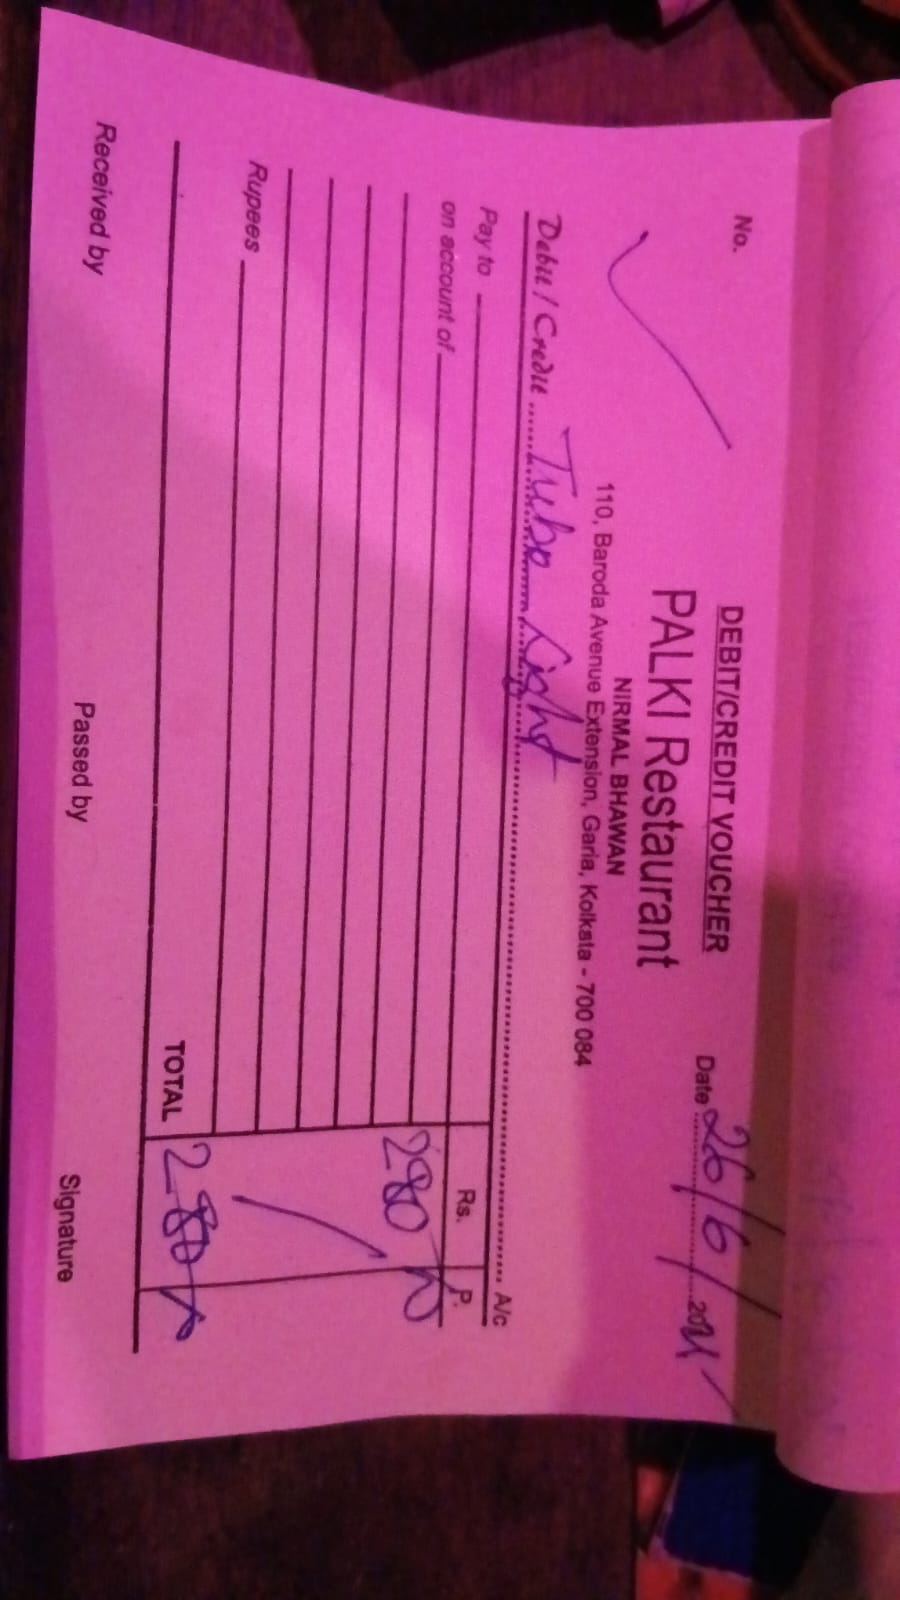 DEBIT/CREDIT VOUCHER
No.
PALKI Restaurant
Date 26/6/2021
NIRMAL BHAWAN
110, Baroda Avenue Extension, Garia, Kolkata - 700 084
Debit / Credit Tube Light A/c
Pay to Rs. P.
on account of
280
Rupees
TOTAL 280
Received by Passed by Signature